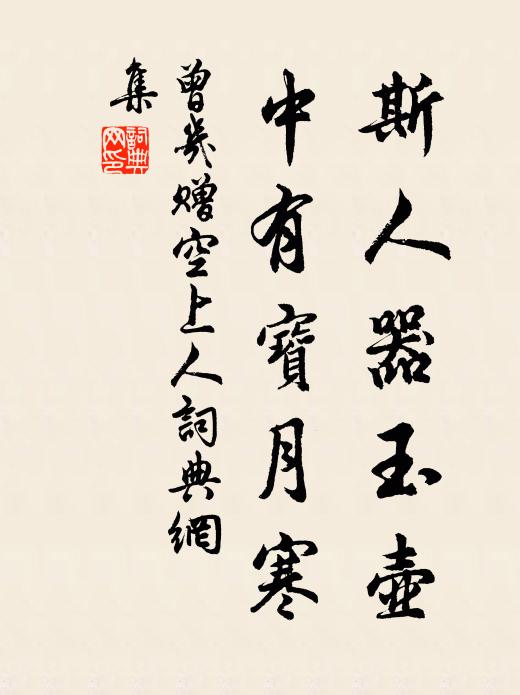 斯人器玉壺
中有寶月寒
曾幾贈空上人詞典網
集
詞典網印